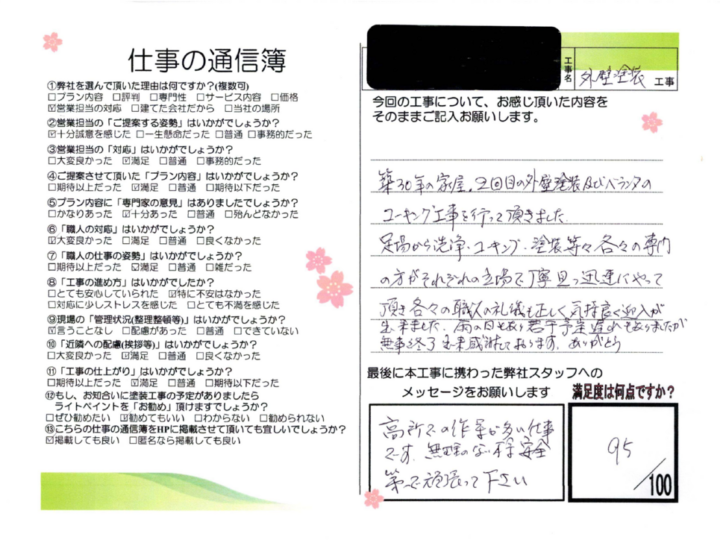 仕事の通信簿
①弊社を選んで頂いた理由は何ですか?(複数可)
□プラン内容 □評判 □専門性 □サービス内容 □価格
☑営業担当の対応 □建てた会社だから □当社の場所
②営業担当の「ご提案する姿勢」はいかがでしょうか?
☑十分誠意を感じた □一生懸命だった □普通 □事務的だった
③営業担当の「対応」はいかがでしょうか?
□大変良かった ☑満足 □普通 □事務的だった
④ご提案させて頂いた「プラン内容」はいかがでしょうか?
□期待以上だった ☑満足 □普通 □期待以下だった
⑤プラン内容に「専門家の意見」はありましたでしょうか?
□かなりあった ☑十分あった □普通 □殆んどなかった
⑥「職人の対応」はいかがでしょうか?
☑大変良かった □満足 □普通 □良くなかった
⑦「職人の仕事の姿勢」はいかがでしょうか?
□期待以上だった ☑満足 □普通 □雑だった
⑧「工事の進め方」はいかがでしたか?
□とても安心していられた ☑特に不安はなかった
□対応に少しストレスを感じた □とても不満を感じた
⑨現場の「管理状況(整理整頓等)」はいかがでしょうか?
☑言うことなし □配慮があった □普通 □できていない
⑩「近隣への配慮(挨拶等)」はいかがでしょうか?
□大変良かった ☑満足 □普通 □良くなかった
⑪「工事の仕上がり」はいかがでしょうか?
□期待以上だった ☑満足 □普通 □期待以下だった
⑫もし、お知合いに塗装工事の予定がありましたら
ライトペイントを「お勧め」頂けますでしょうか?
□ぜひ勧めたい ☑勧めてもいい □わからない □勧められない
⑬こちらの仕事の通信簿をHPに掲載させて頂いても宜しいでしょうか?
☑掲載しても良い □匿名なら掲載しても良い
工事名 外壁塗装 工事
今回の工事について、お感じ頂いた内容を
そのままご記入お願いします。
築30年の家屋、2回目の外壁塗装及びベランダの
コーキング工事を行って頂きました
足場から洗浄・コーキング・塗装等々各々の専門
の方がそれぞれの立場で丁寧且つ迅速にやって
頂き各々の職人の礼儀も正しく気持良く迎入が
出来ました、雨の日もあり若干予定遅れもありましたが
無事終了出来感謝しております。ありがとう
最後に本工事に携わった弊社スタッフへの
メッセージをお願いします
高所での作業が多い仕事
です、無理のない様安全
第一で頑張って下さい
満足度は何点ですか?
95
/100